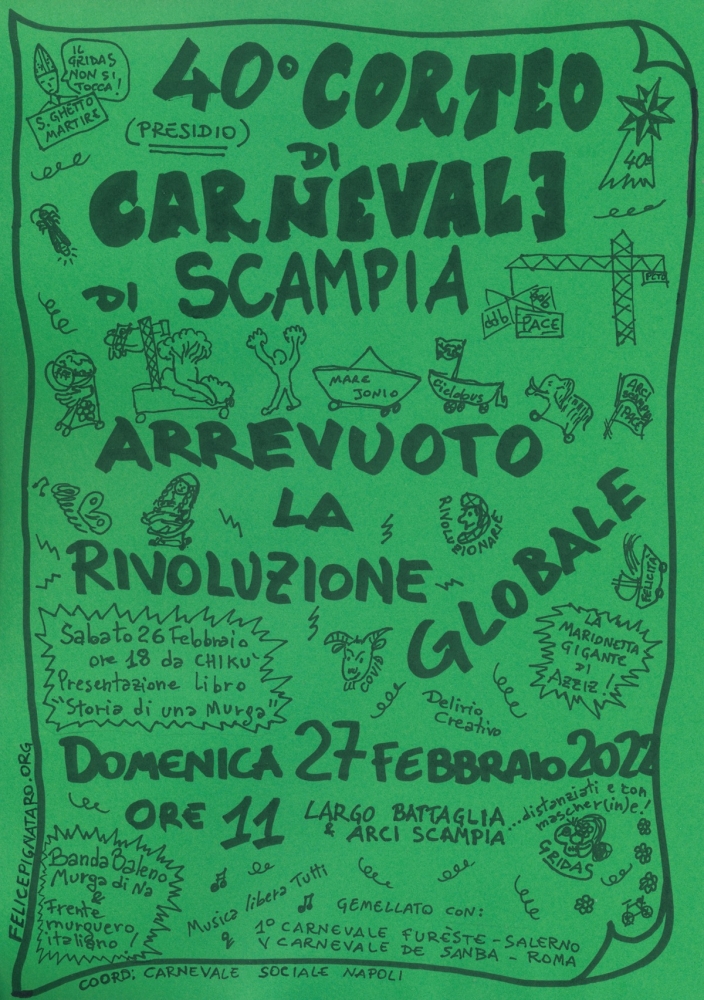 IL
GRIDAS
NON SI
TOCCA!
S. GHETTO
MARTIRE
40° CORTEO
(PRESIDIO)
DI
CARNEVALE
40°
DI SCAMPIA
PACE
MARE
JONIO
Ciclobus
ARCI
SCAMPIA
PACE
ARREVUOTO
LA
RIVOLUZIONE
GLOBALE
RIVOLUZIONARIE
FELICITÀ
Sabato 26 Febbraio
ore 18 da CHIKÙ
Presentazione Libro
"Storia di una Murga"
COVID
LA
MARIONETTA
GIGANTE
DI
AZZIZ!
Delirio
Creativo
DOMENICA 27 FEBBRAIO 2022
ORE 11
LARGO BATTAGLIA
& ARCI SCAMPIA
...distanziati e con
mascher(in)e!
GRIDAS
Banda Baleno
Murga di Na
&
Frente
murguero
italiano!
Musica libera Tutti
GEMELLATO CON:
1° CARNEVALE FURÈSTE - SALERNO
V CARNEVALE DE SANBA - ROMA
COORD: CARNEVALE SOCIALE NAPOLI
FELICEPIGNATARO.ORG